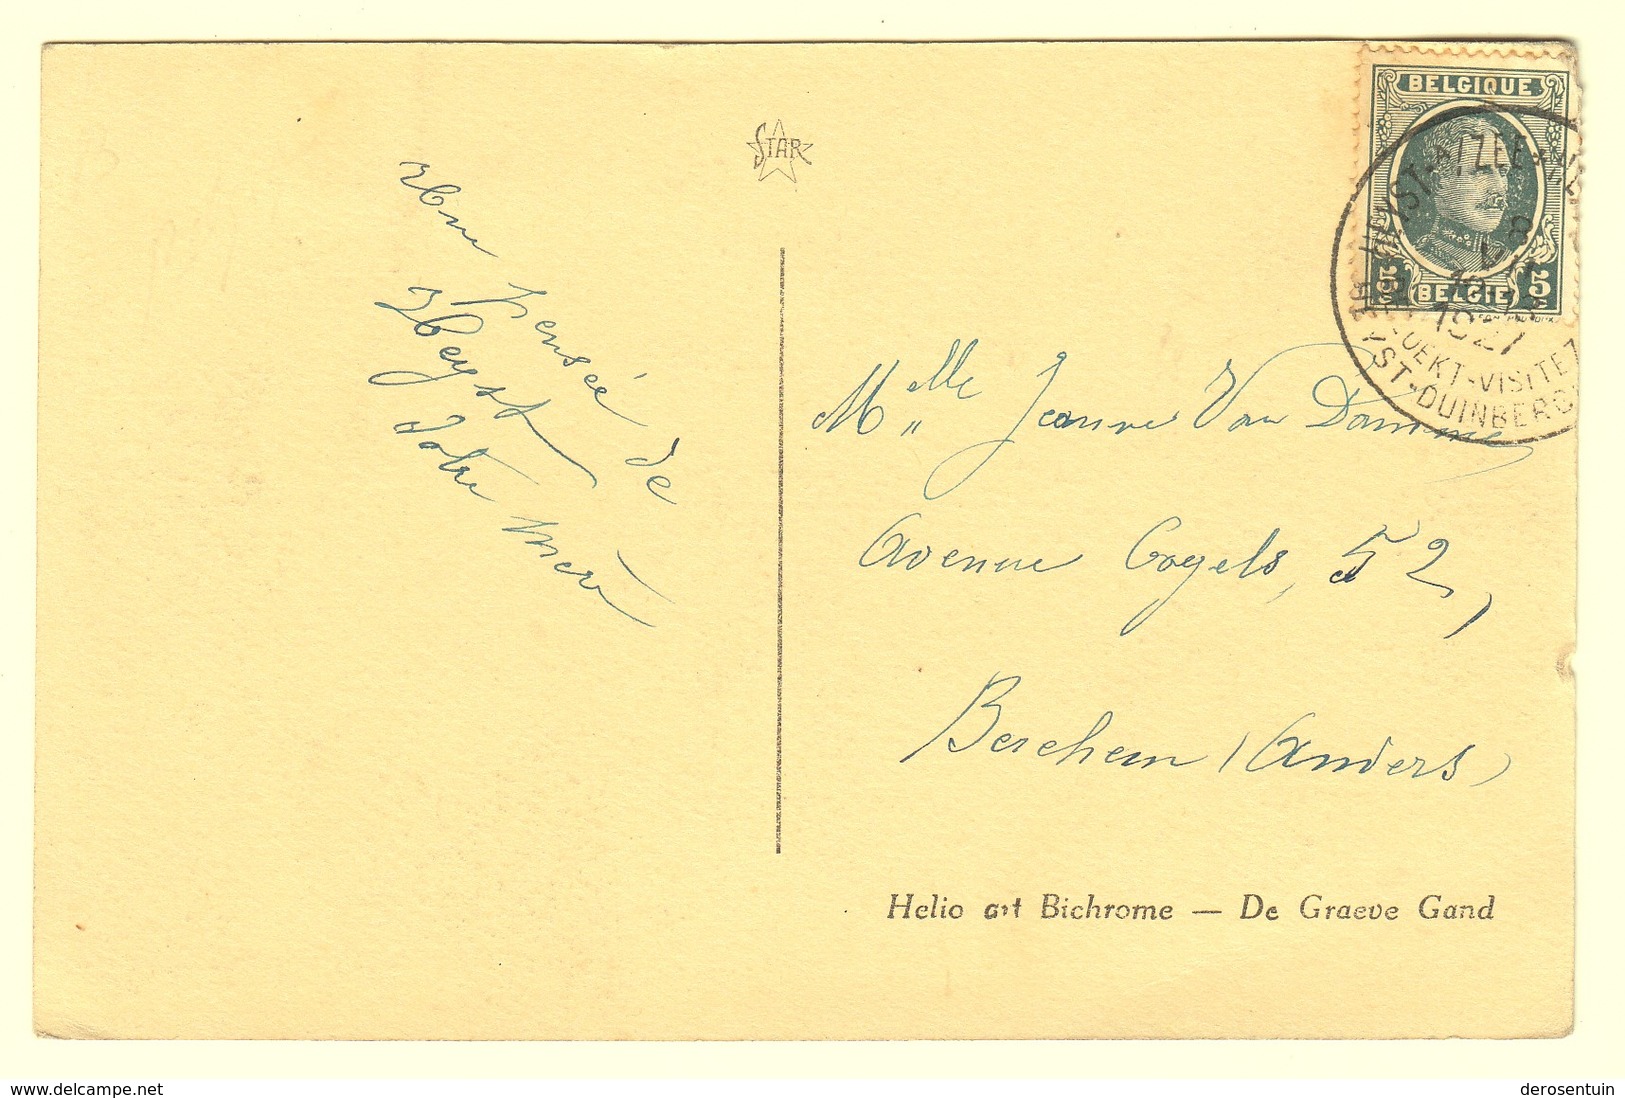 STAR
Une pensée de
Heyst
Votre mère
BELGIQUE
5 5
BELGIE
HEYST-A/ZEE
8
1927
ZOEKT-VISITEZ
HEYST-DUINBERG
Melle Jeanne Van Damme
Avenue Cogels, 52,
Berchem (Anvers)
Helio art Bichrome — De Graeve Gand
delcampe.net
derosentuin